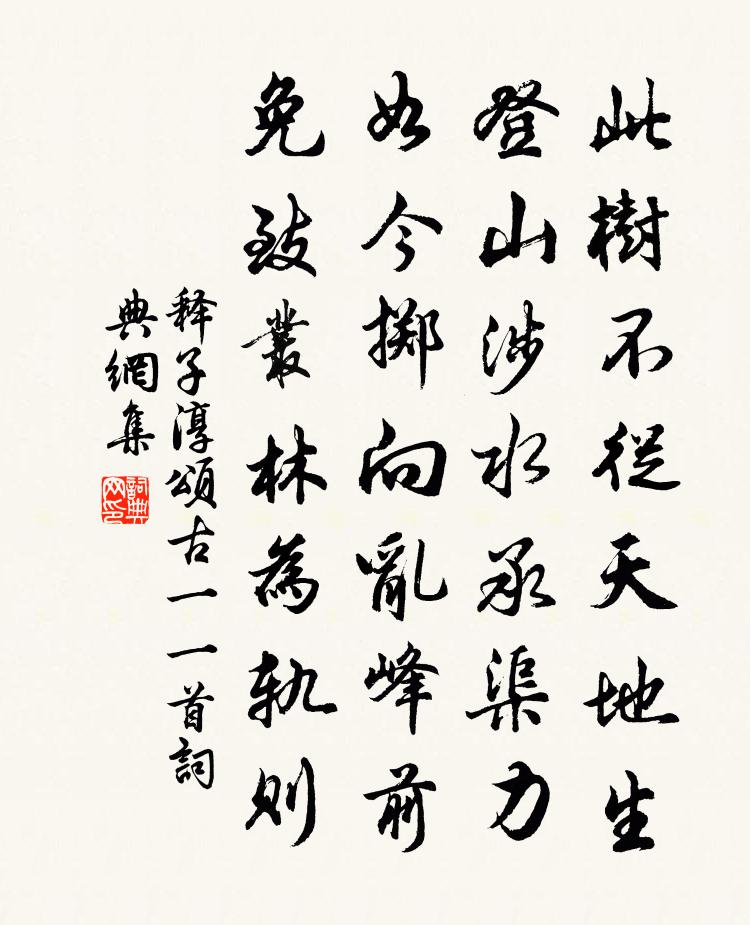 此樹不從天地生
登山涉水承渠力
如今擲向亂峰前
免致叢林為軌則
释子淳頌古一一首詞
典網集
詞典
网印